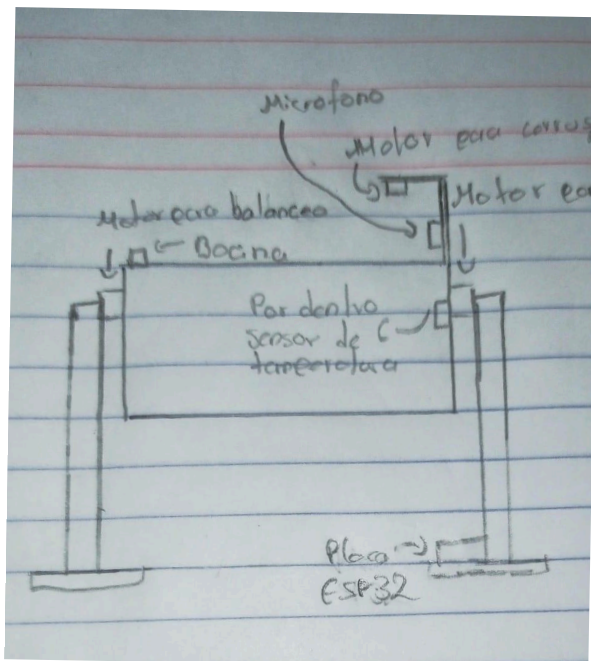 Microfono
Motor para
Motor
Motor para balanceo
Bocina
Por dentro
sensor de
temperatura
Placa
ESP32